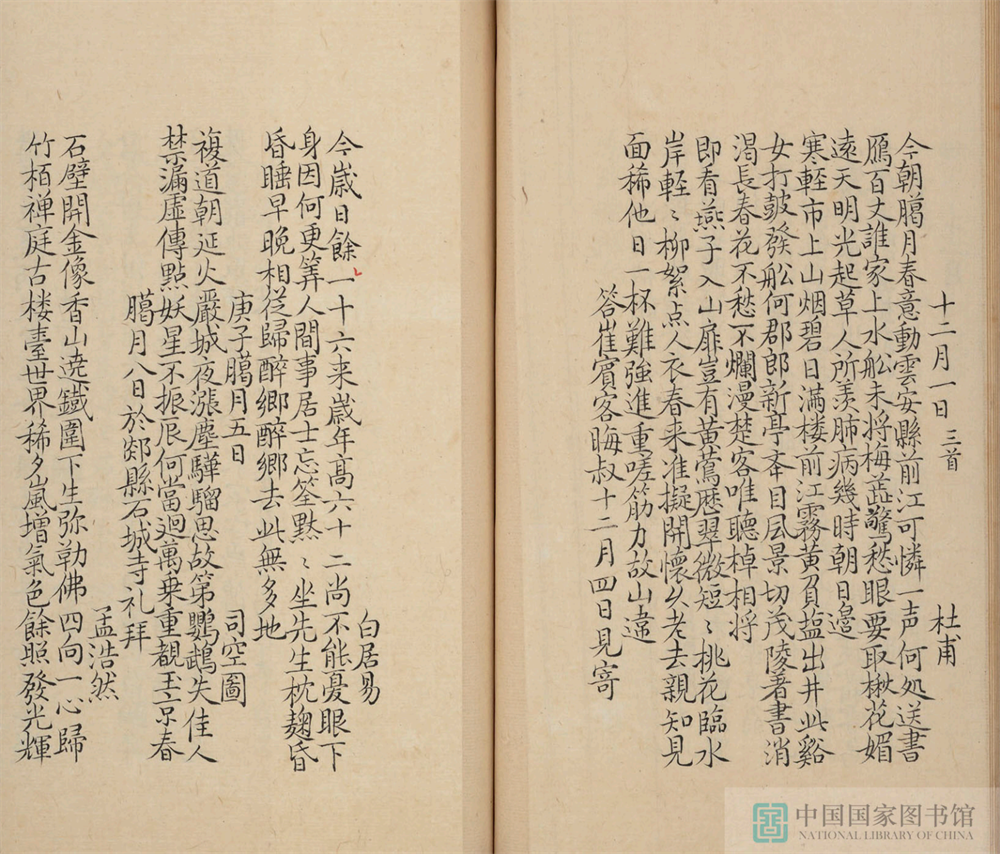 十二月一日 三首 杜甫
今朝臈月春意動雲安縣前江可憐一声何処送書
鴈百丈誰家上水舩未将梅蘂驚愁眼要取楸花媚
遠天明光起草人所羡肺病幾時朝日邉
寒軽市上山烟碧日满楼前江霧黄負塩出井此谿
女打皷發舩何郡郎新亭夲目風景切茂陵著書消
渇長春花不愁不爛漫楚客唯聴棹相将
即看燕子入山扉豈有黄鶯歴翠微短〻桃花臨水
岸軽〻柳絮点人衣春来准擬開懷久老去親知見
面稀他日一杯難強進重嗟筋力故山違
答崔賓客晦叔十二月四日見寄
白居易
今歳日餘一十六来歳年髙六十二尚不能憂眼下
身因何更筭人間事居士忘筌黙〻坐先生枕麹昏
昏睡早晩相従歸醉郷醉郷去此無多地
庚子臈月五日 司空圖
複道朝延火嚴城夜漲塵驊騮思故第鸚鵡失佳人
禁漏虚傳點妖星不振辰何當迴萬乗重覩玉京春
臈月八日於郯縣石城寺礼拜
孟浩然
石壁開金像香山遶鐵圍下生弥勒佛四向一心歸
竹栢禅庭古楼臺世界稀夕嵐增氣色餘照發光輝
中国国家图书馆
NATIONAL LIBRARY OF CHINA